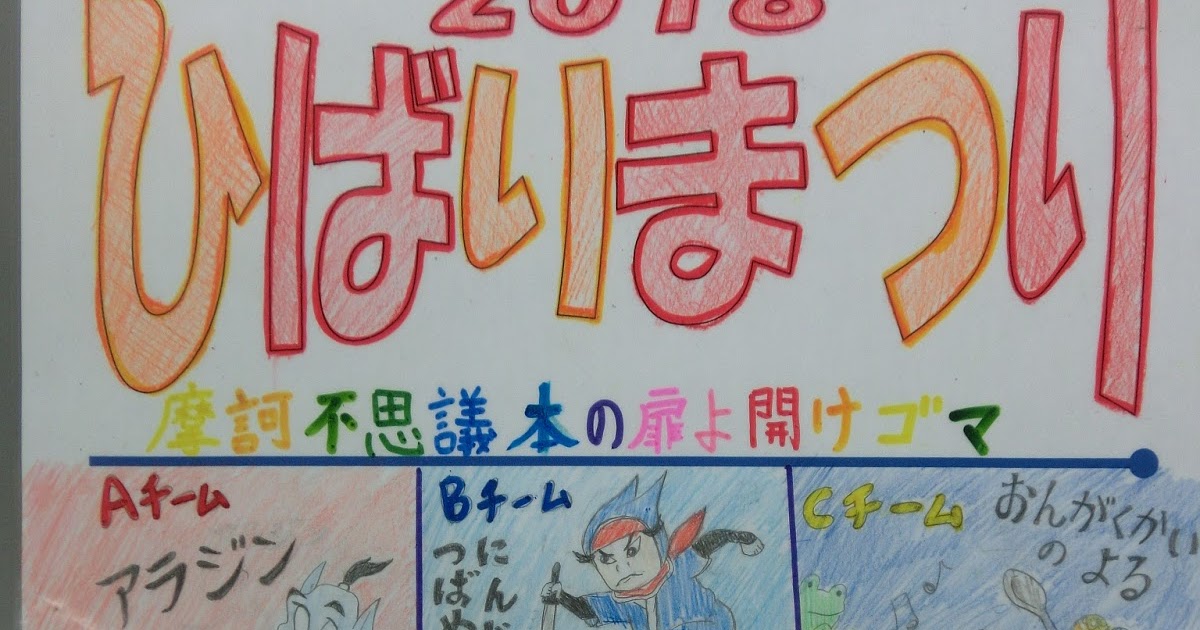 2018
ひばりまつり
摩訶不思議本の扉よ開けゴマ
Aチーム
アラジン
Bチーム
にん
つばめ
Cチーム
おんがくかい
の よる